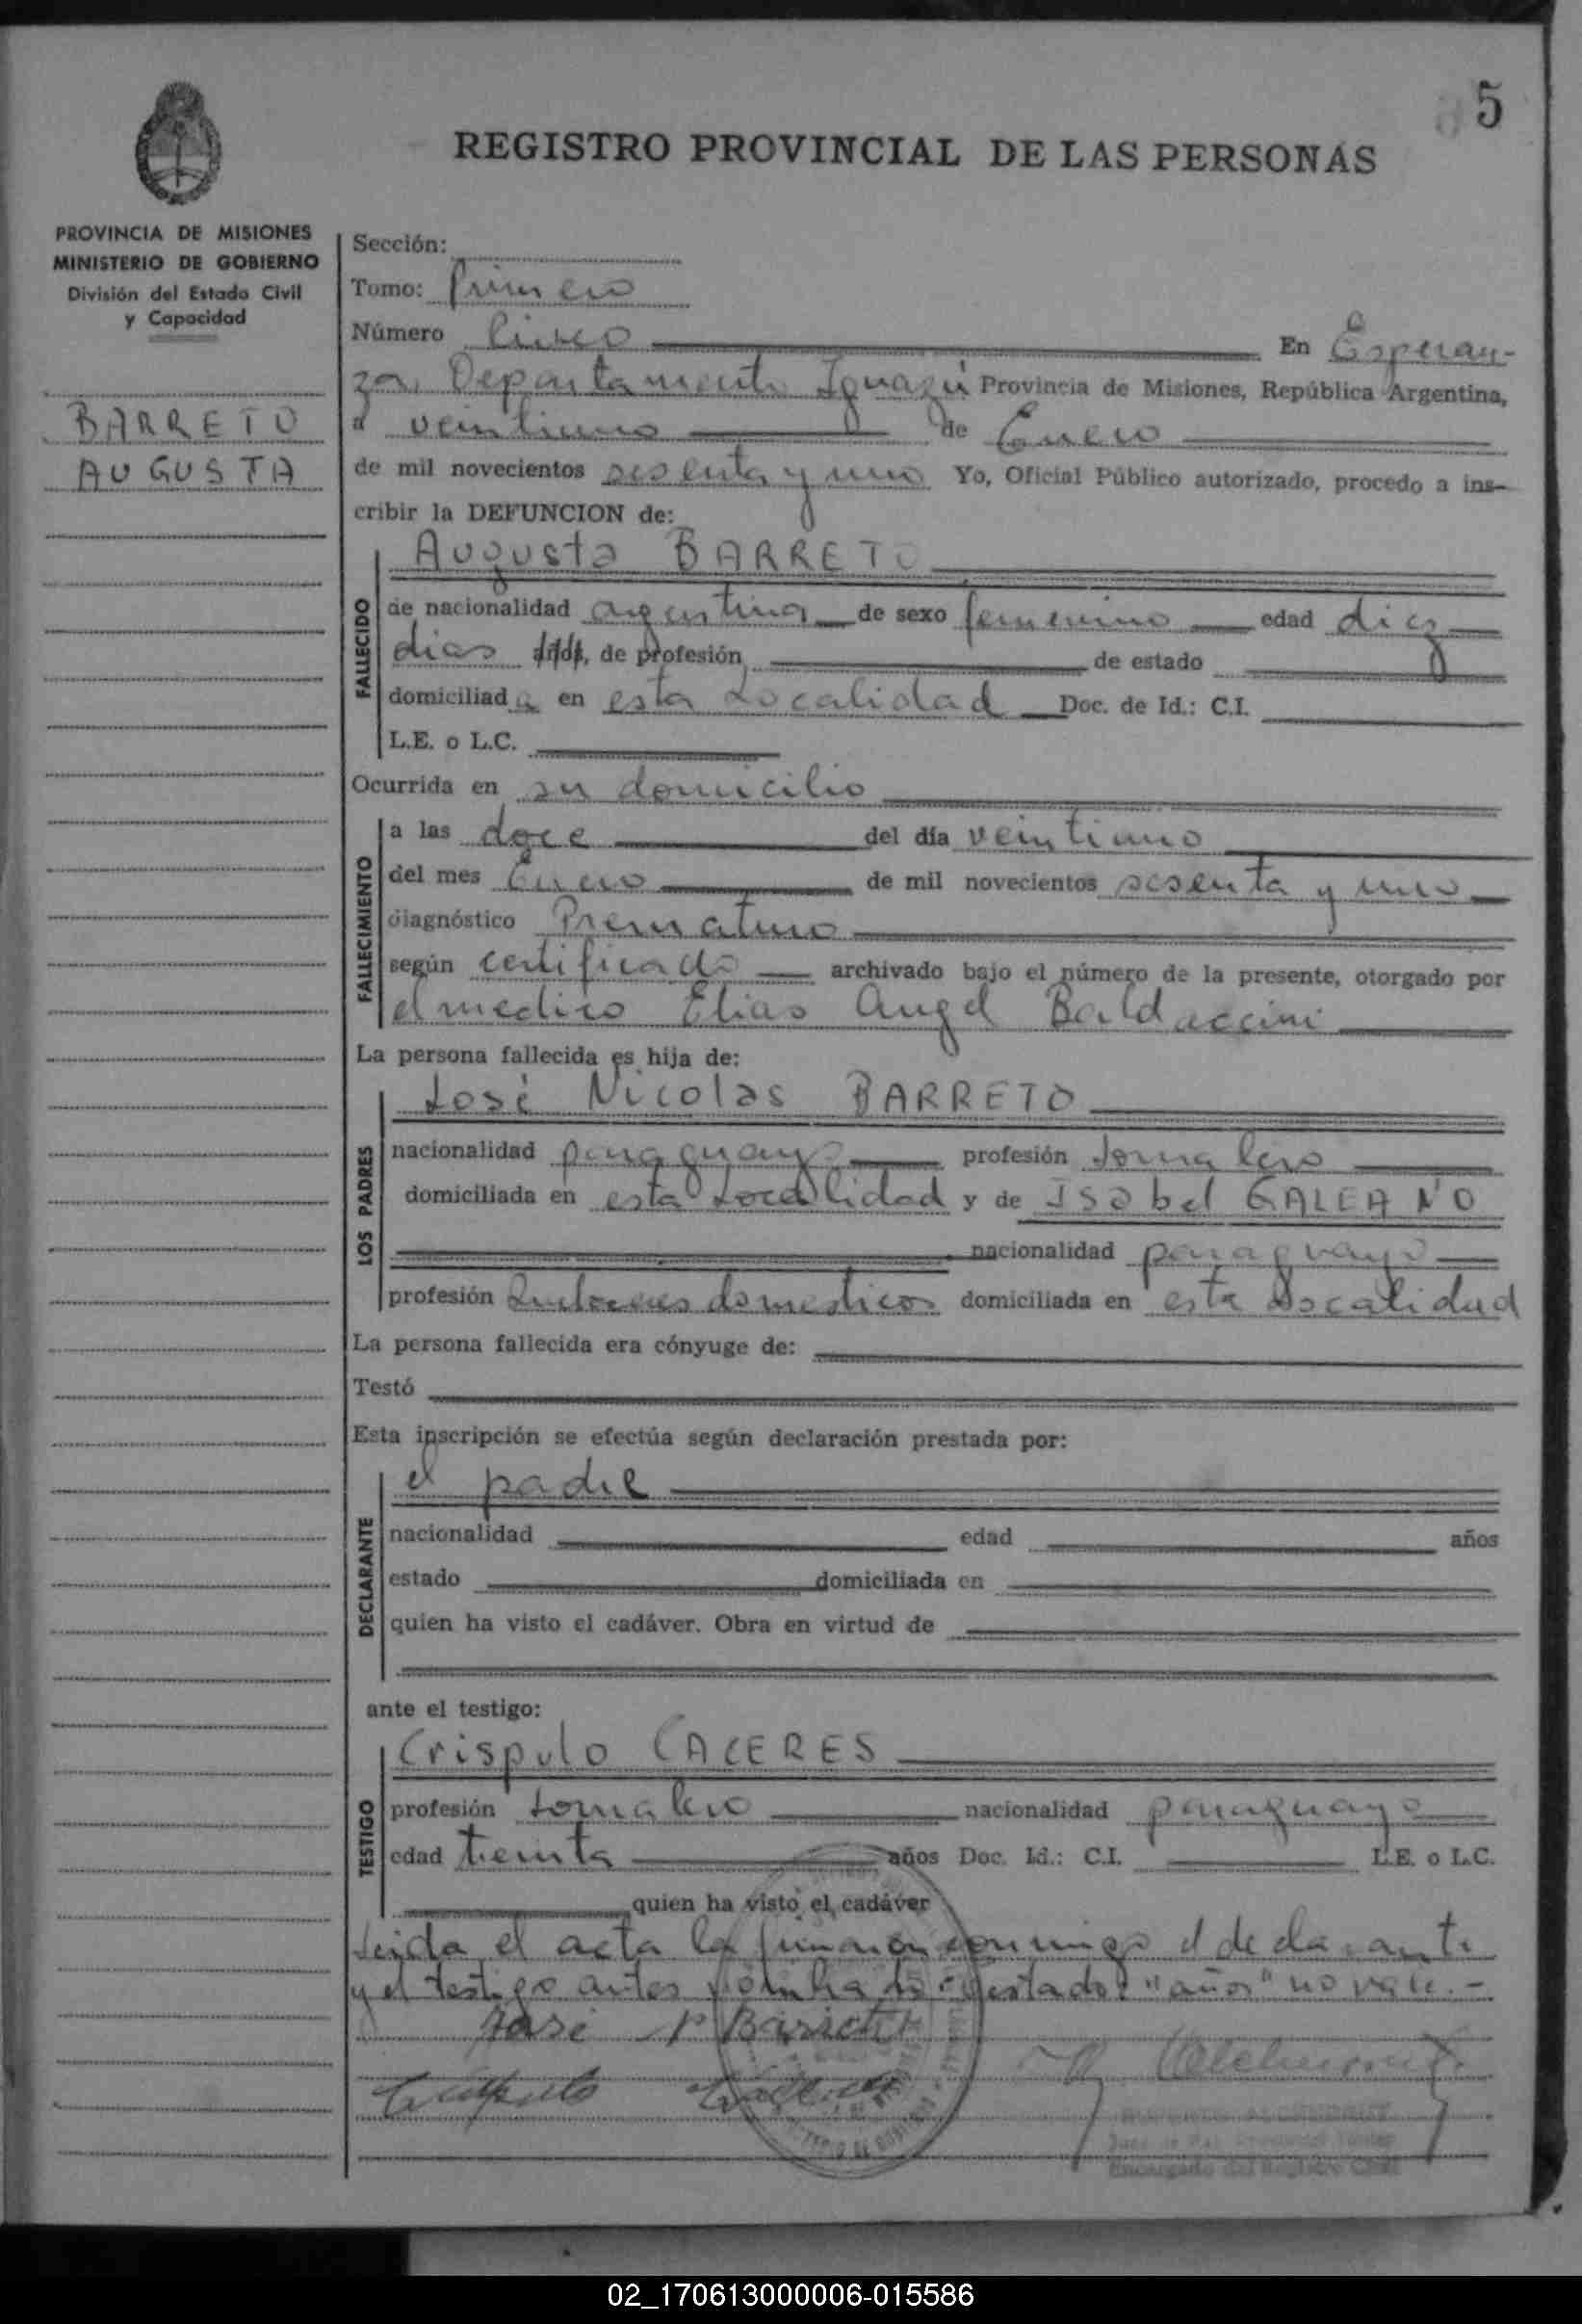 5
REGISTRO PROVINCIAL DE LAS PERSONAS
PROVINCIA DE MISIONES
MINISTERIO DE GOBIERNO
División del Estado Civil
y Capacidad
BARRETO
AUGUSTA
Sección:
Tomo: Primero
Número Cinco En Esperan-
za, Departamento Iguazú Provincia de Misiones, República Argentina,
a veintiuno de Enero
de mil novecientos sesenta y uno Yo, Oficial Público autorizado, procedo a ins-
cribir la DEFUNCION de:
Augusta BARRETO
FALLECIDO
de nacionalidad argentina de sexo femenino edad diez
dias años, de profesión de estado
domiciliada en esta Localidad Doc. de Id.: C.I.
L.E. o L.C.
Ocurrida en su domicilio
FALLECIMIENTO
a las doce del día veintiuno
del mes Enero de mil novecientos sesenta y uno
diagnóstico Prematuro
según certificado archivado bajo el número de la presente, otorgado por
el medico Elias Angel Baldaccini
La persona fallecida es hija de:
LOS PADRES
José Nicolas BARRETO
nacionalidad paraguayo profesión Jornalero
domiciliada en esta Localidad y de Isabel GALEANO
nacionalidad paraguaya
profesión Quehaceres domesticos domiciliada en esta Localidad
La persona fallecida era cónyuge de:
Testó
Esta inscripción se efectúa según declaración prestada por:
DECLARANTE
el padre
nacionalidad edad años
estado domiciliada en
quien ha visto el cadáver. Obra en virtud de
ante el testigo:
TESTIGO
Crispulo CACERES
profesión Jornalero nacionalidad paraguayo
edad treinta años Doc. Id.: C.I. L.E. o L.C.
quien ha visto el cadáver
Leida el acta la firman conmigo el declarante
y el testigo antes testado: "años" no vale.-
José
Encargado del Registro Civil
02_170613000006-015586